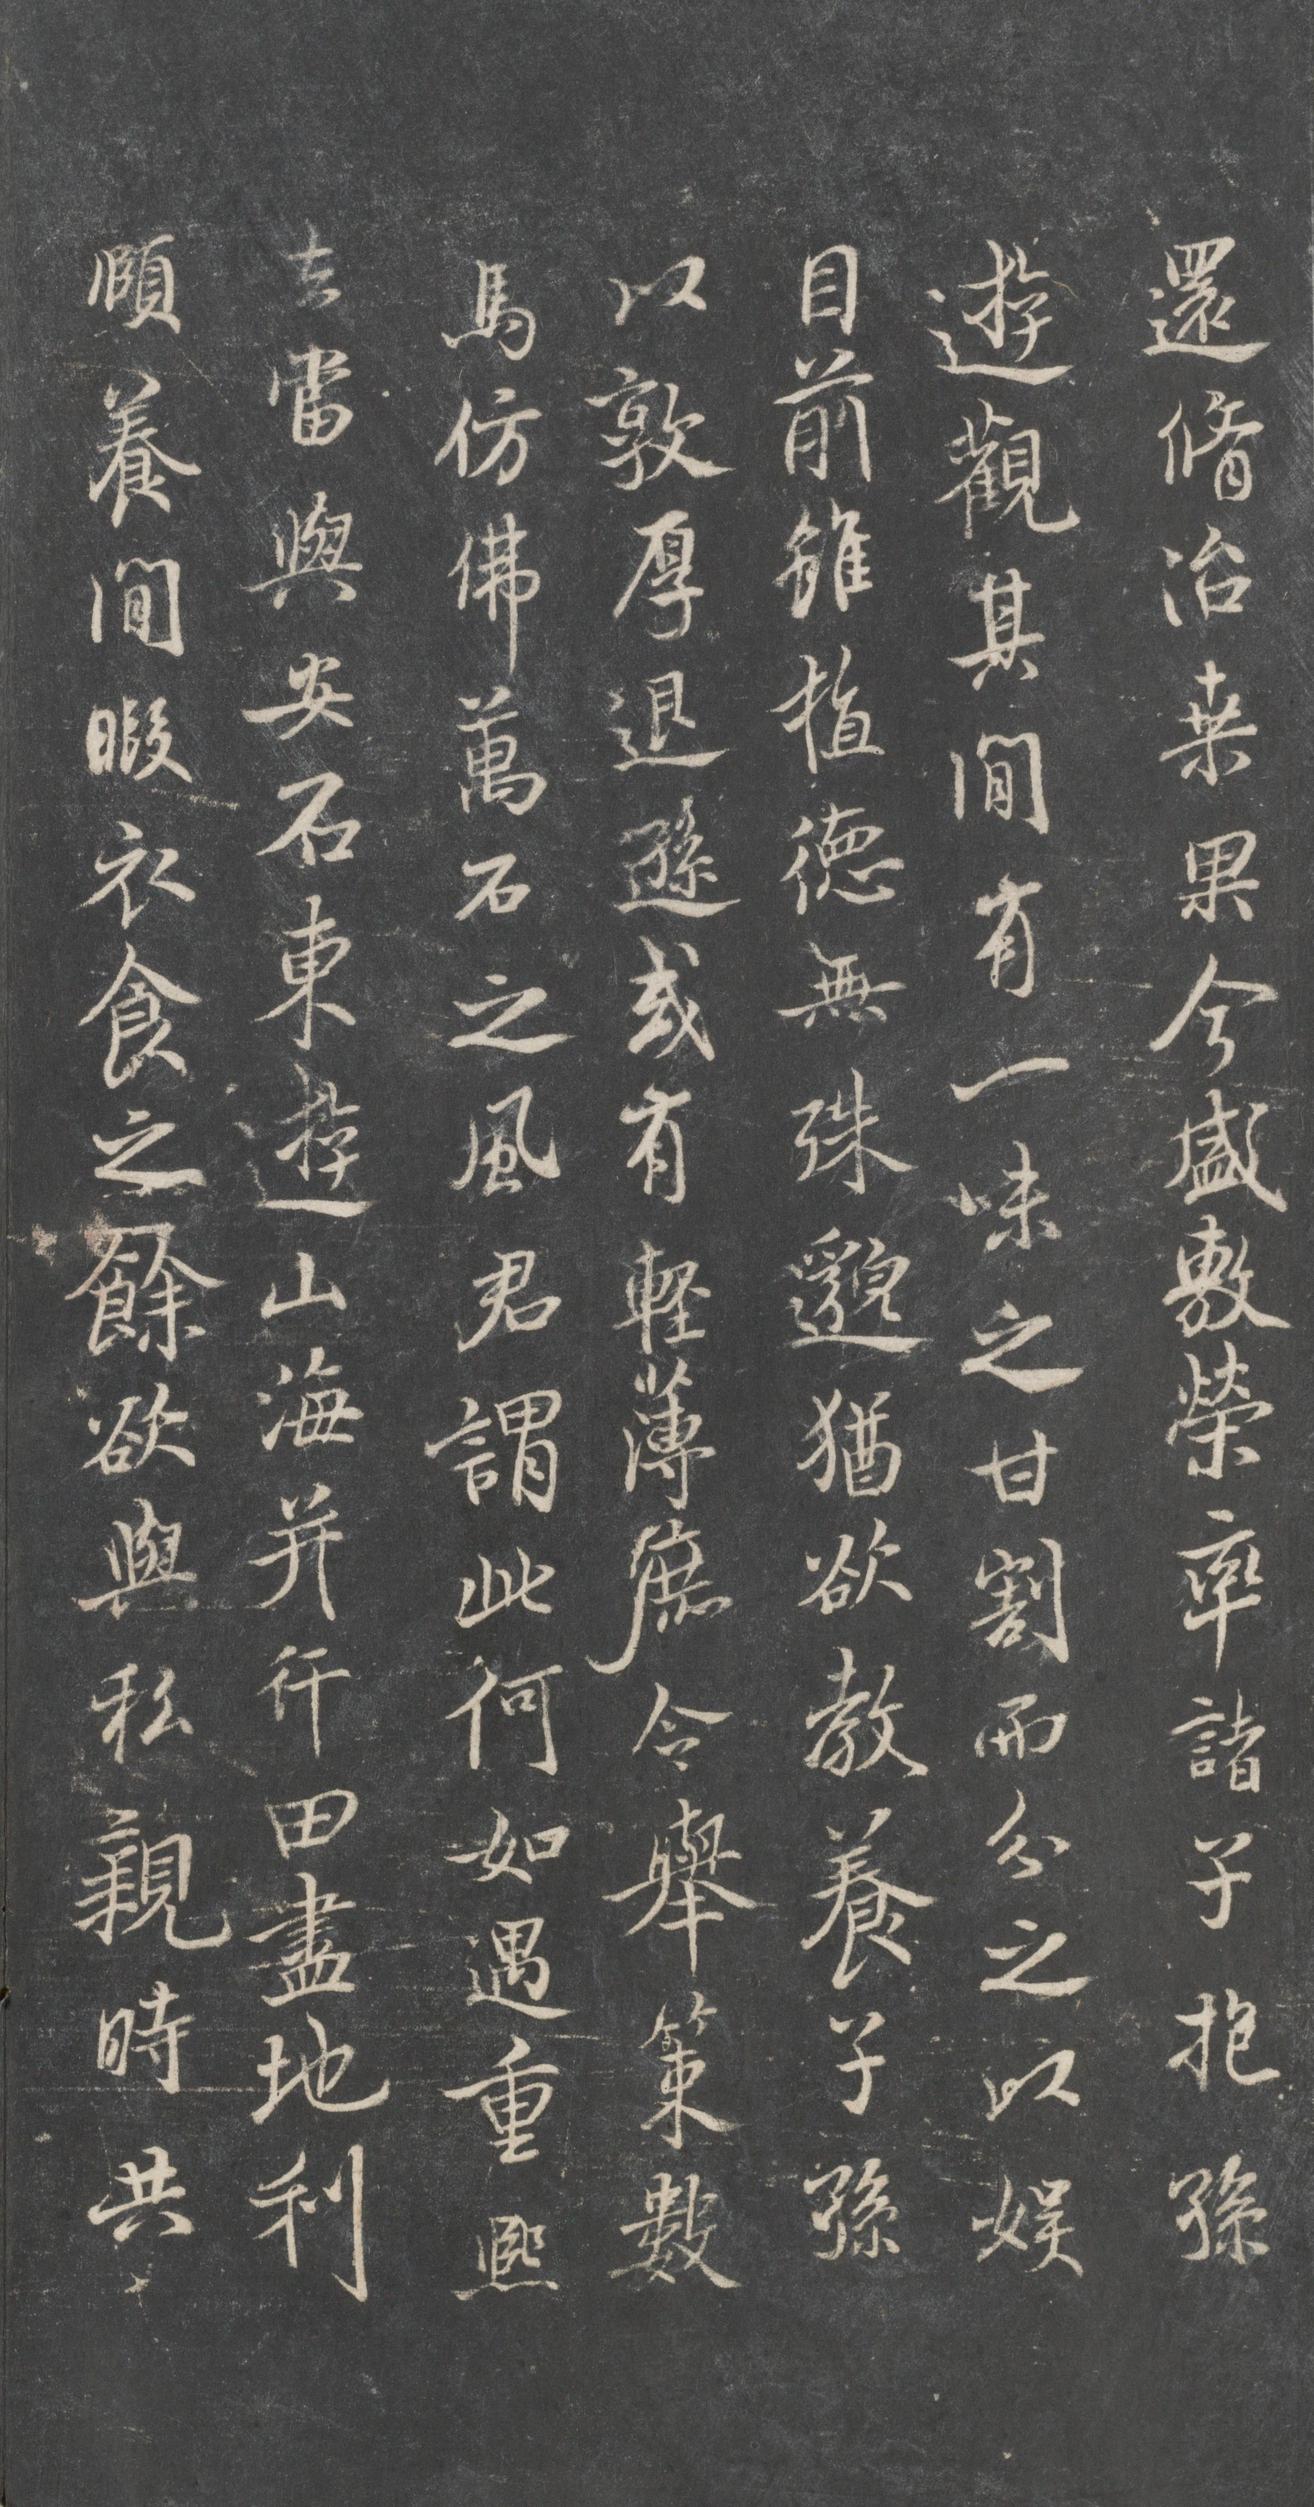 還脩治桒果今盛敷榮率諸子抱孫
遊觀其間有一味之甘割而分之以娛
目前雖植德無殊邈猶欲教養子孫
以敦厚退遜或有輕薄庶令舉策數
馬仿佛萬石之風君謂此何如遇重熙
去當與安石東遊山海并行田盡地利
頤養閒暇衣食之餘欲與私親時共